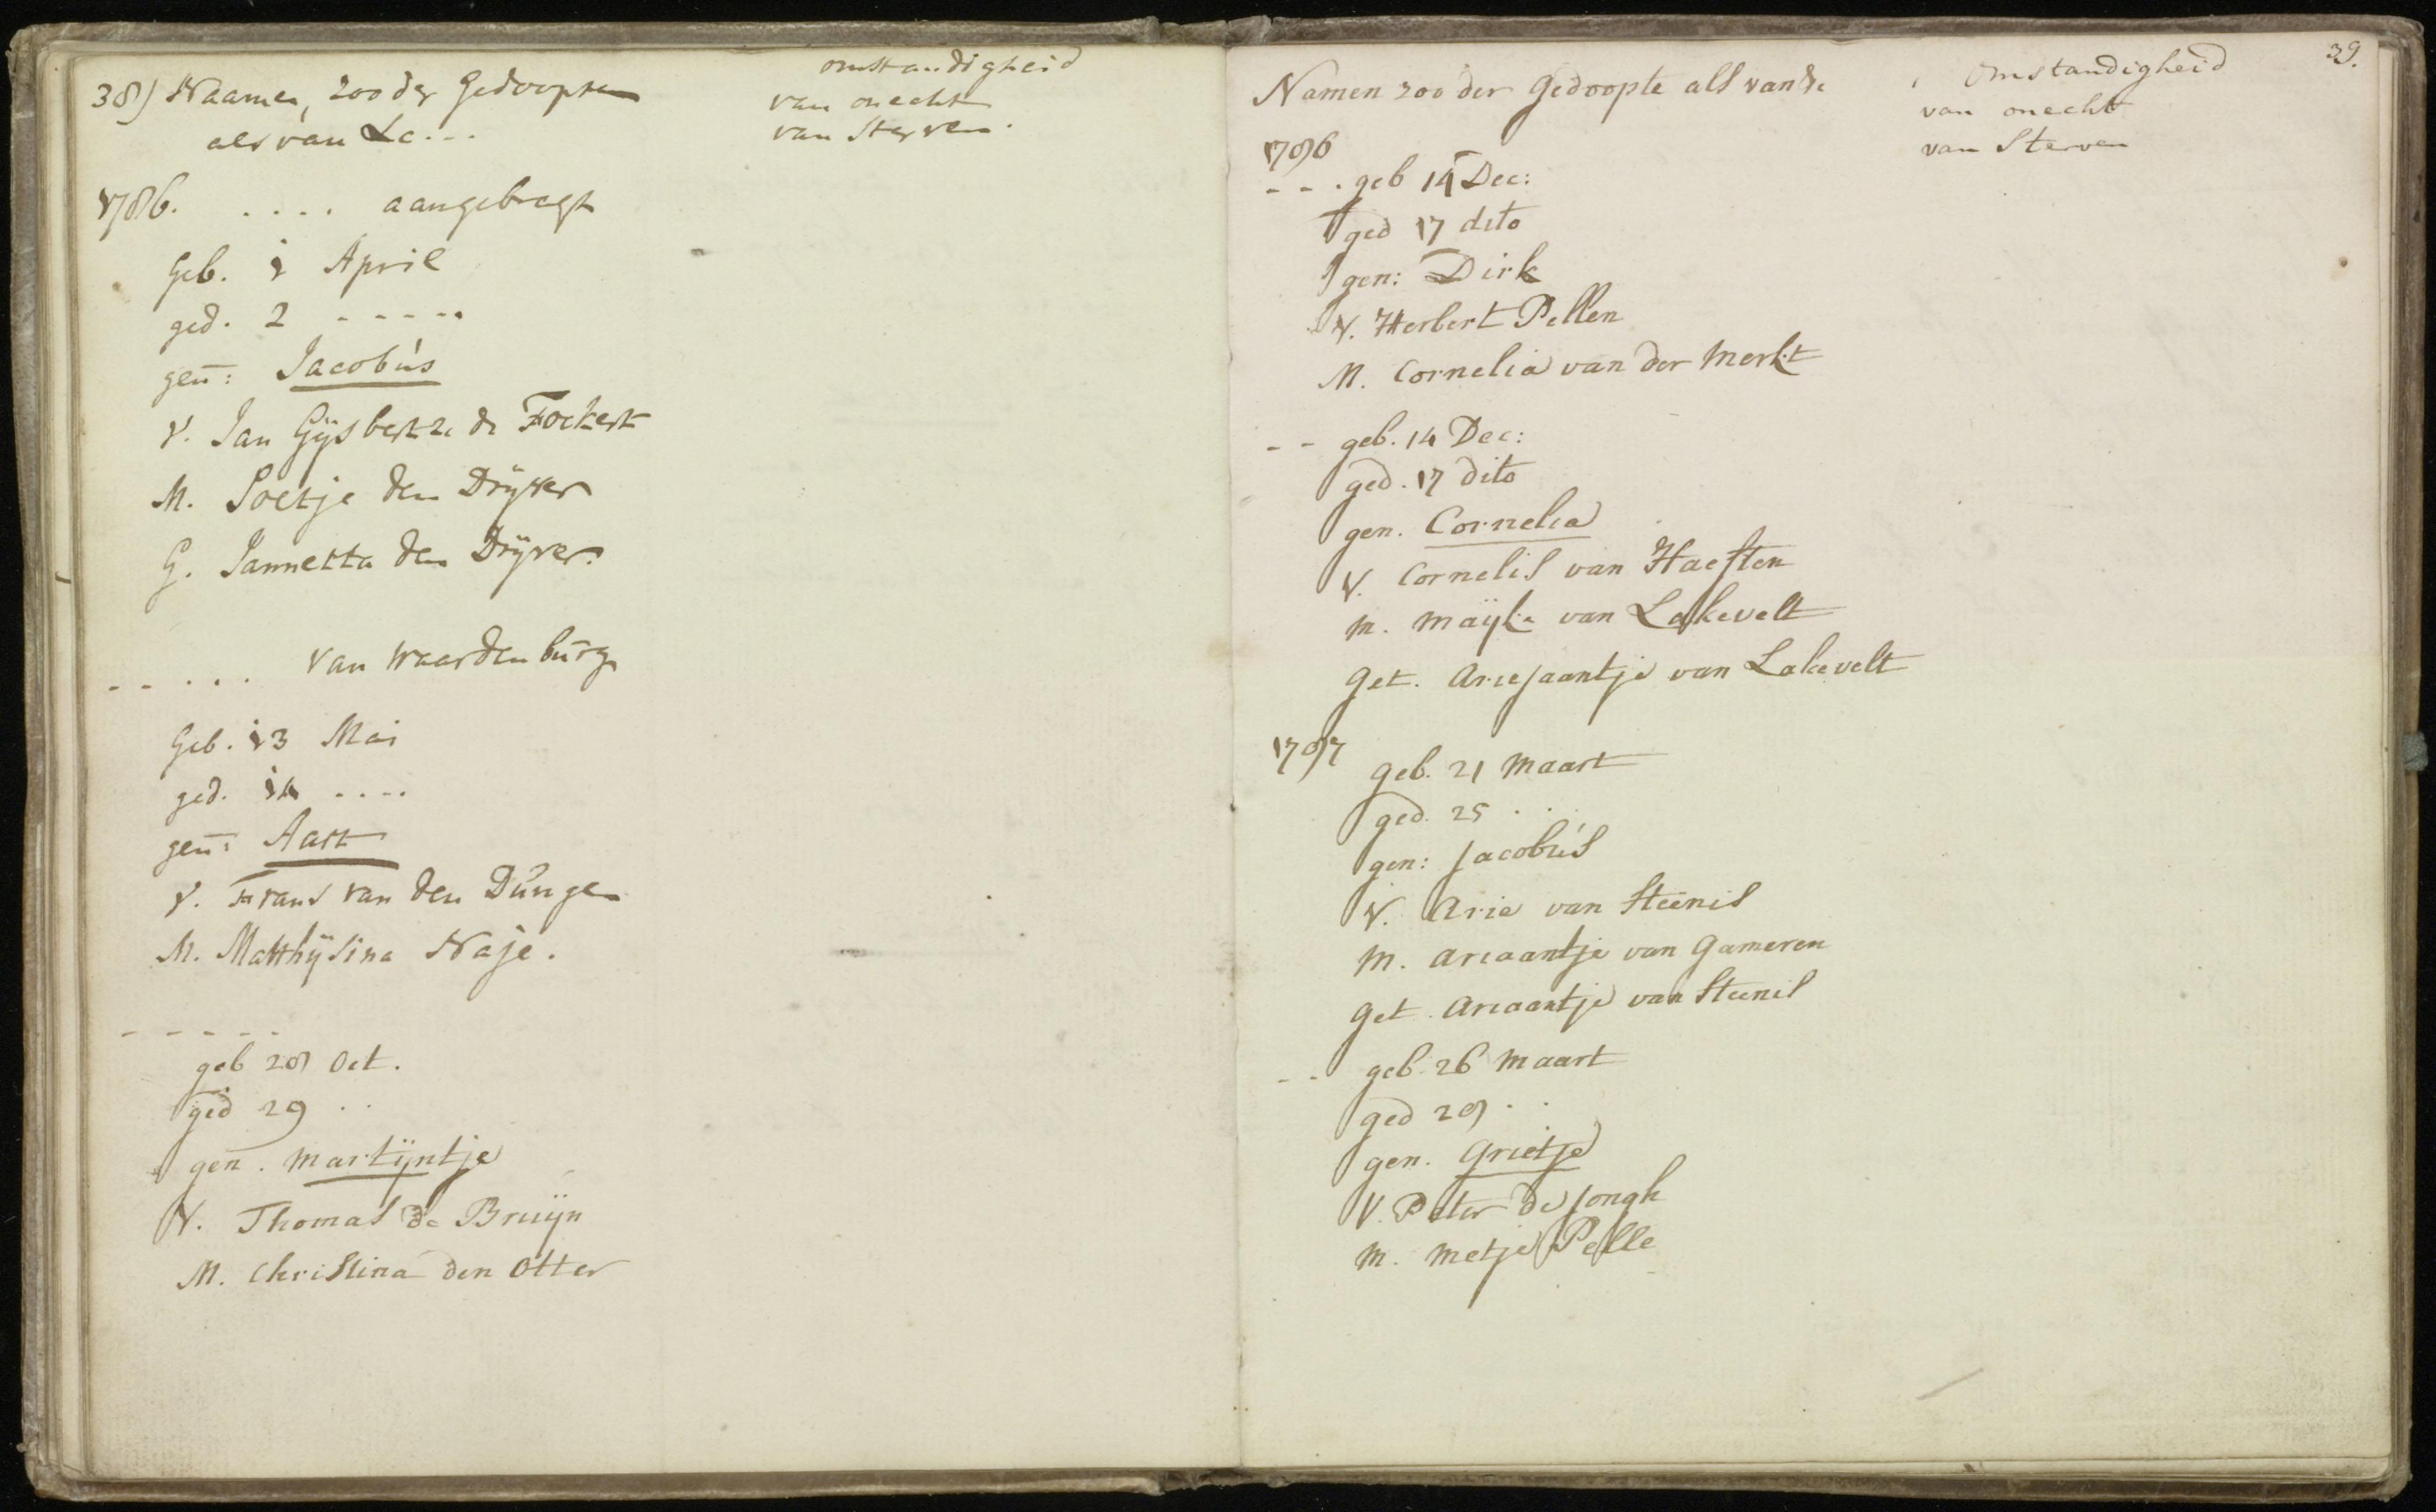 38) Naamen, zoo der Gedoopten
als van de ...
omstandigheid
van onecht
van Sterven.
1786. .... aangebragt
Geb. 1 April
ged. 2 - - - - -
gen̄: Jacobús
V. Jan Gÿsbertze de Fockert
M. Soetje den Drÿver
G. Jannetta den Drÿver.
- - . . . van Waardenbūrg
Geb. 13 Mai
ged. 14 ....
gen̄: Aart
V. Frans van den Dúnge
M. Matthÿsina Naje.
- - - - -
geb 28 Oct.
ged 29 . .
gen̄. Martÿntje
V. Thomas de Bruÿn
M. Christina den Otter
39.
Namen zoo der Gedoopte als van de
Omstandigheid
van onecht
van Sterven
1786
- - . geb 14 Dec:
ged 17 dito
gen: Dirk
V. Herbert Pellen
M. Cornelia van der Merkt
- - geb. 14 Dec:
ged. 17 dito
gen. Cornelia
V. Cornelis van Haeften
M. Maÿke van Lakevelt
Get. Ariejaantje van Lakevelt
1787
geb. 21 Maart
ged. 25 . .
gen: Jacobús
V. Arie van Steenis
M. Ariaantje van Gameren
Get. Ariaantje van Steenis
- - geb. 26 Maart
ged 28 . .
gen. Grietje
V. Peter de Jongh
M. Metje Pelle